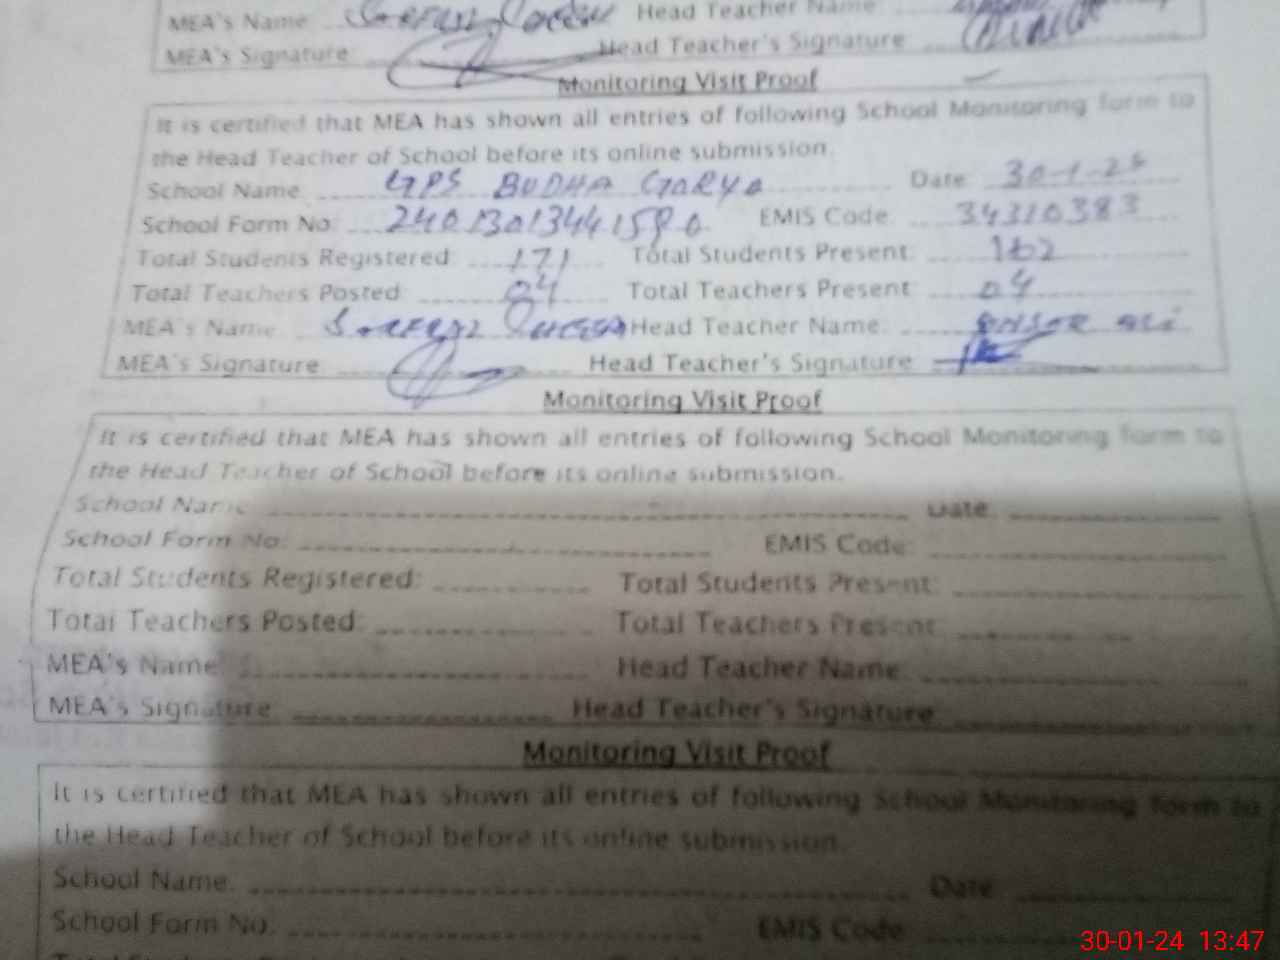 MEA's Name Head Teacher Name:
MEA's Signature: Head Teacher's Signature
Monitoring Visit Proof
It is certified that MEA has shown all entries of following School Monitoring form to
the Head Teacher of School before its online submission.
School Name GPS BUDHA GORYA Date 30-1-24
School Form No: 24013013441580 EMIS Code: 34310383
Total Students Registered: 171 Total Students Present: 162
Total Teachers Posted: 04 Total Teachers Present 04
MEA's Name Head Teacher Name: Ali
MEA's Signature: Head Teacher's Signature
Monitoring Visit Proof
It is certified that MEA has shown all entries of following School Monitoring form to
the Head Teacher of School before its online submission.
School Name Date
School Form No: EMIS Code:
Total Students Registered: Total Students Present:
Total Teachers Posted: Total Teachers Present
MEA's Name: Head Teacher Name:
MEA's Signature: Head Teacher's Signature
Monitoring Visit Proof
It is certified that MEA has shown all entries of following School Monitoring form to
the Head Teacher of School before its online submission.
School Name. Date
School Form No. EMIS Code
30-01-24 13:47